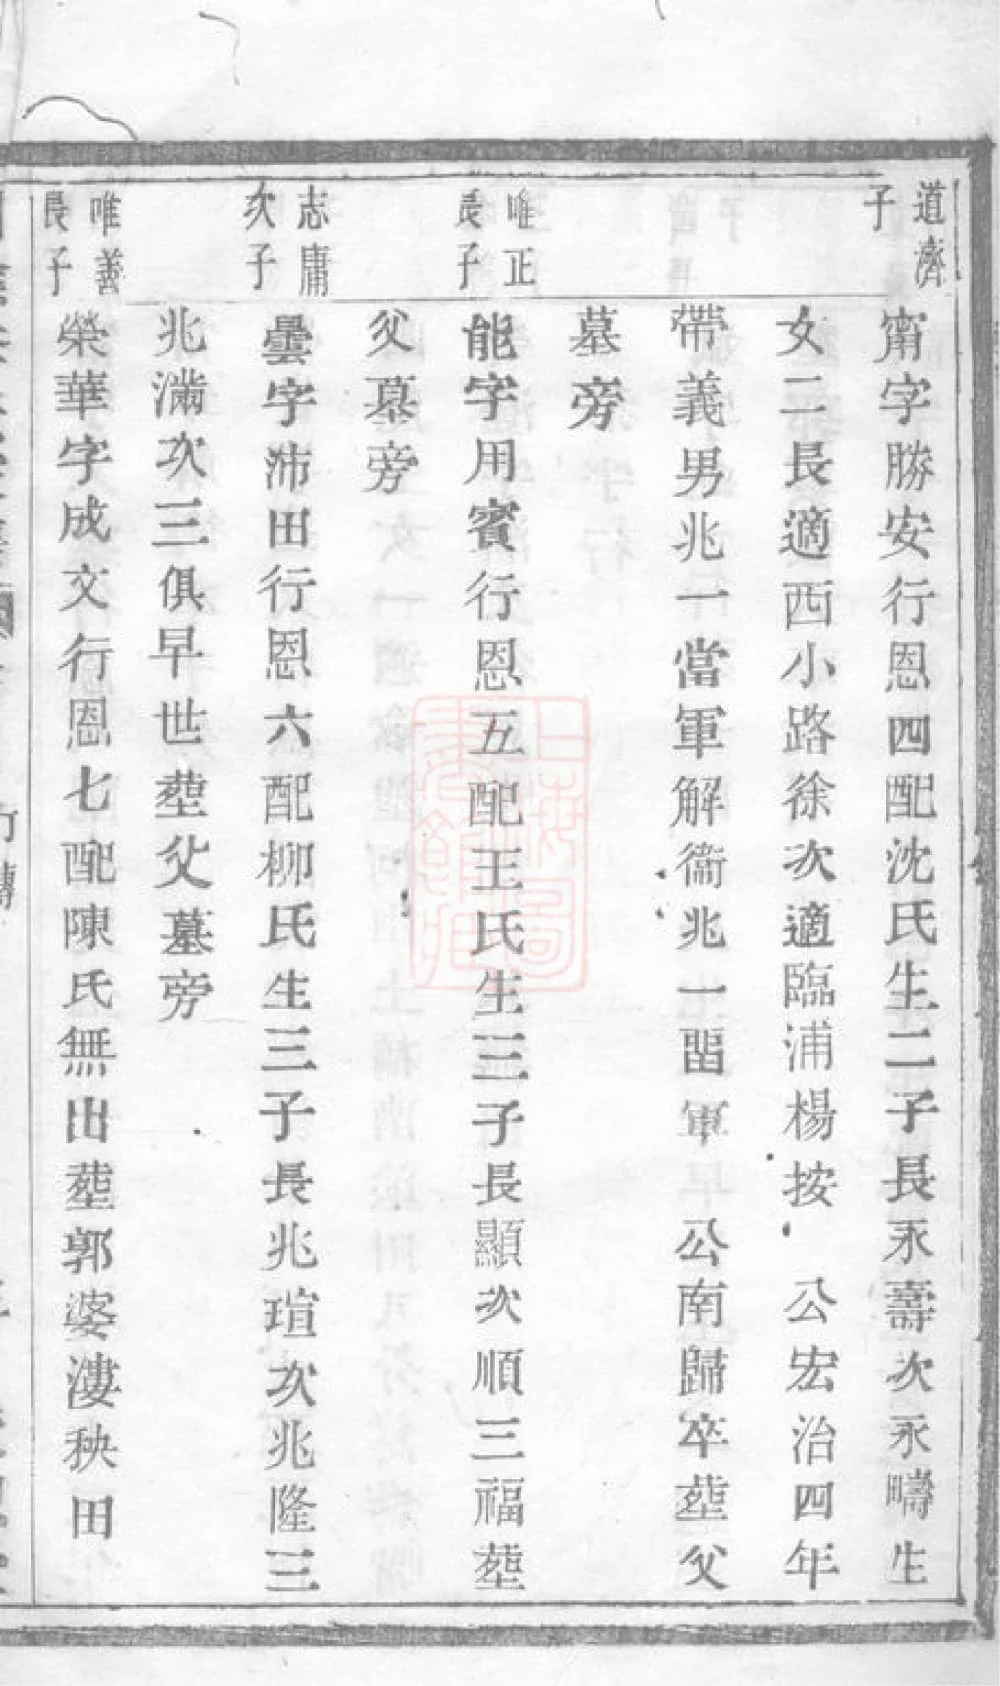 道濟
子
甯字勝安行恩四配沈氏生二子長永壽次永疇生
女二長適西小路徐次適臨浦楊按 公宏治四年
帶義男兆一當軍解衞兆一畱軍 公南歸卒塟父
墓旁
唯正
長子
能字用賓行恩五配王氏生三子長顯次順三福塟
父墓旁
志庸
次子
曇字沛田行恩六配柳氏生三子長兆瑄次兆隆三
兆滿次三俱早世塟父墓旁
唯善
長子
榮華字成文行恩七配陳氏無出塟郭婆漊秧田